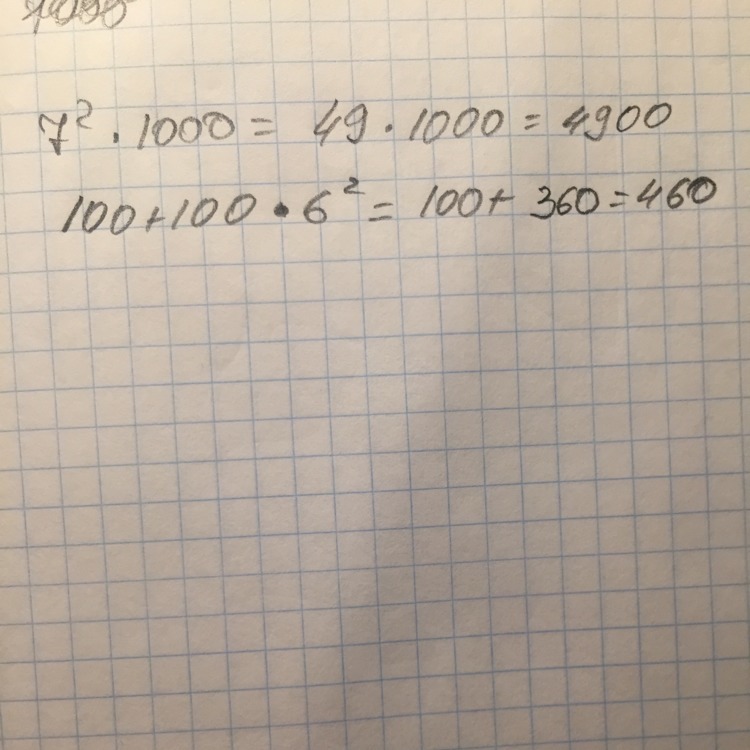 7² · 1000 = 49 · 1000 = 4900
100 + 100 · 6² = 100 + 360 = 460